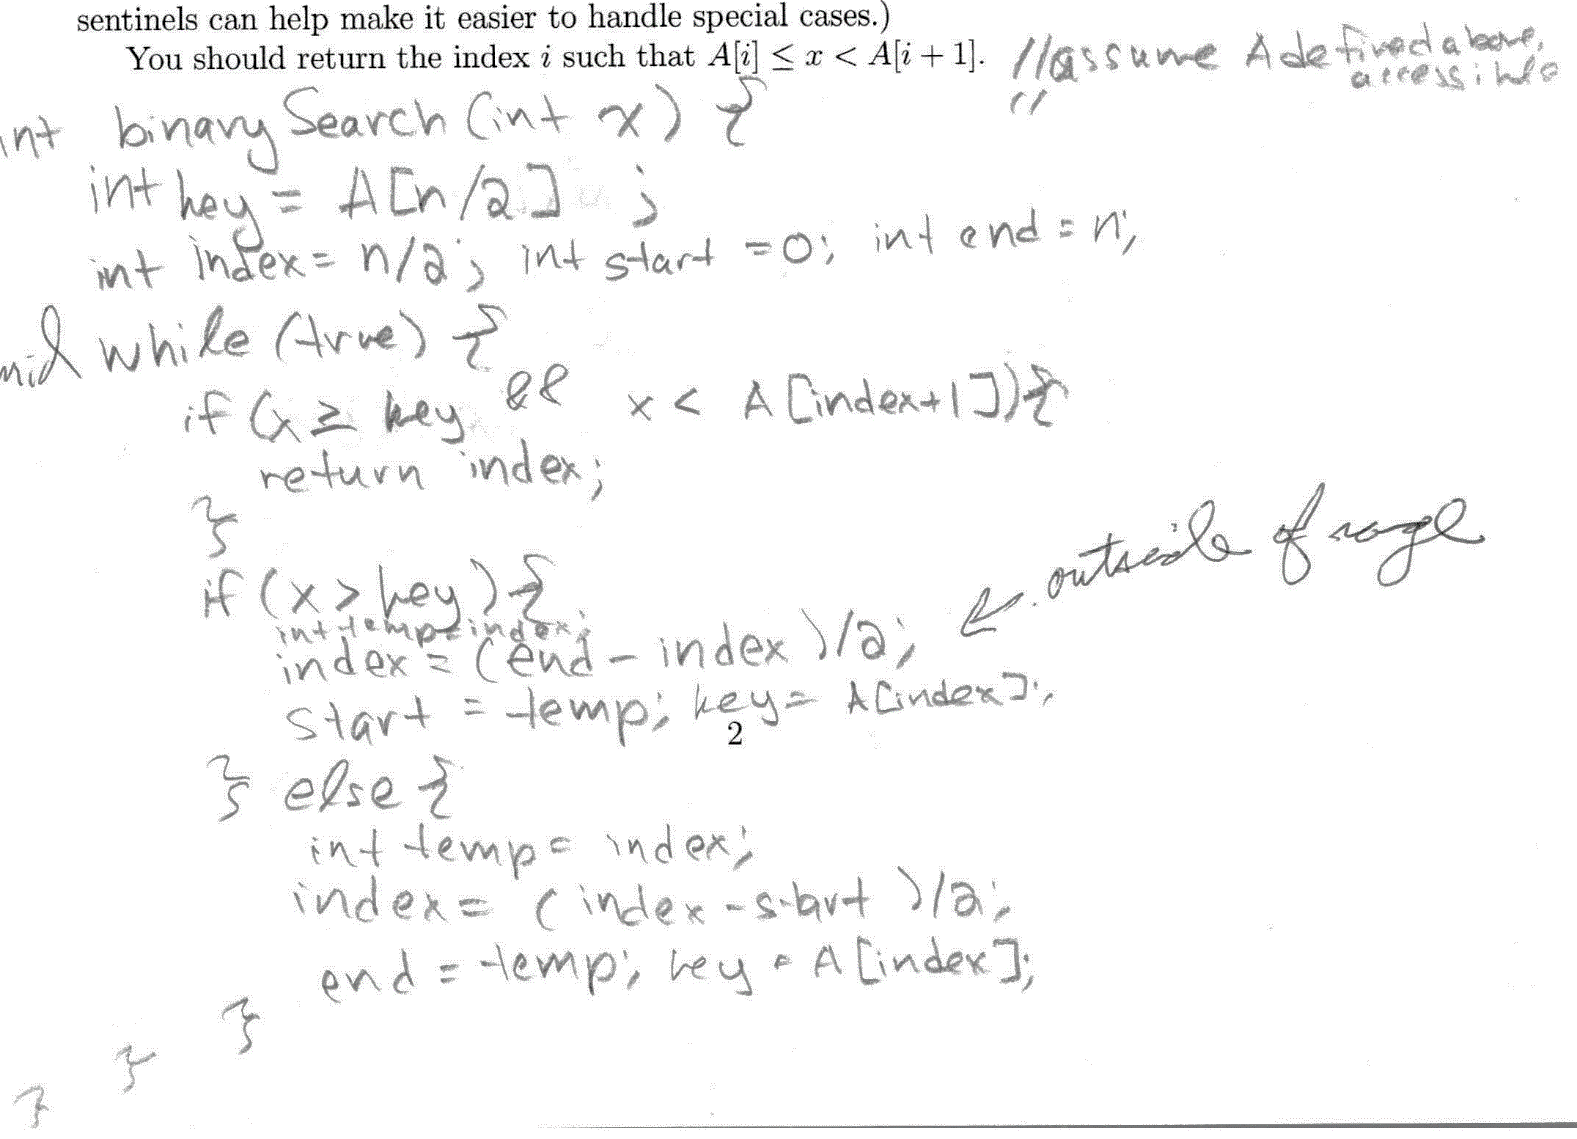 sentinels can help make it easier to handle special cases.)
You should return the index i such that A[i] ≤ x < A[i + 1]. //assume A defined above,
accessible
//
int binary Search (int x) {
int key = A[n/2] ;
int index = n/2; int start = 0; int end = n;
mid while (true) {
if (x ≥ key && x < A[index+1]){
return index;
}
outside of range
if (x > key) {
int temp = index;
index = (end - index )/2;
start = temp; key = A[index];
2
} else {
int temp = index;
index = ( index - start )/2;
end = temp; key = A[index];
}
}
}